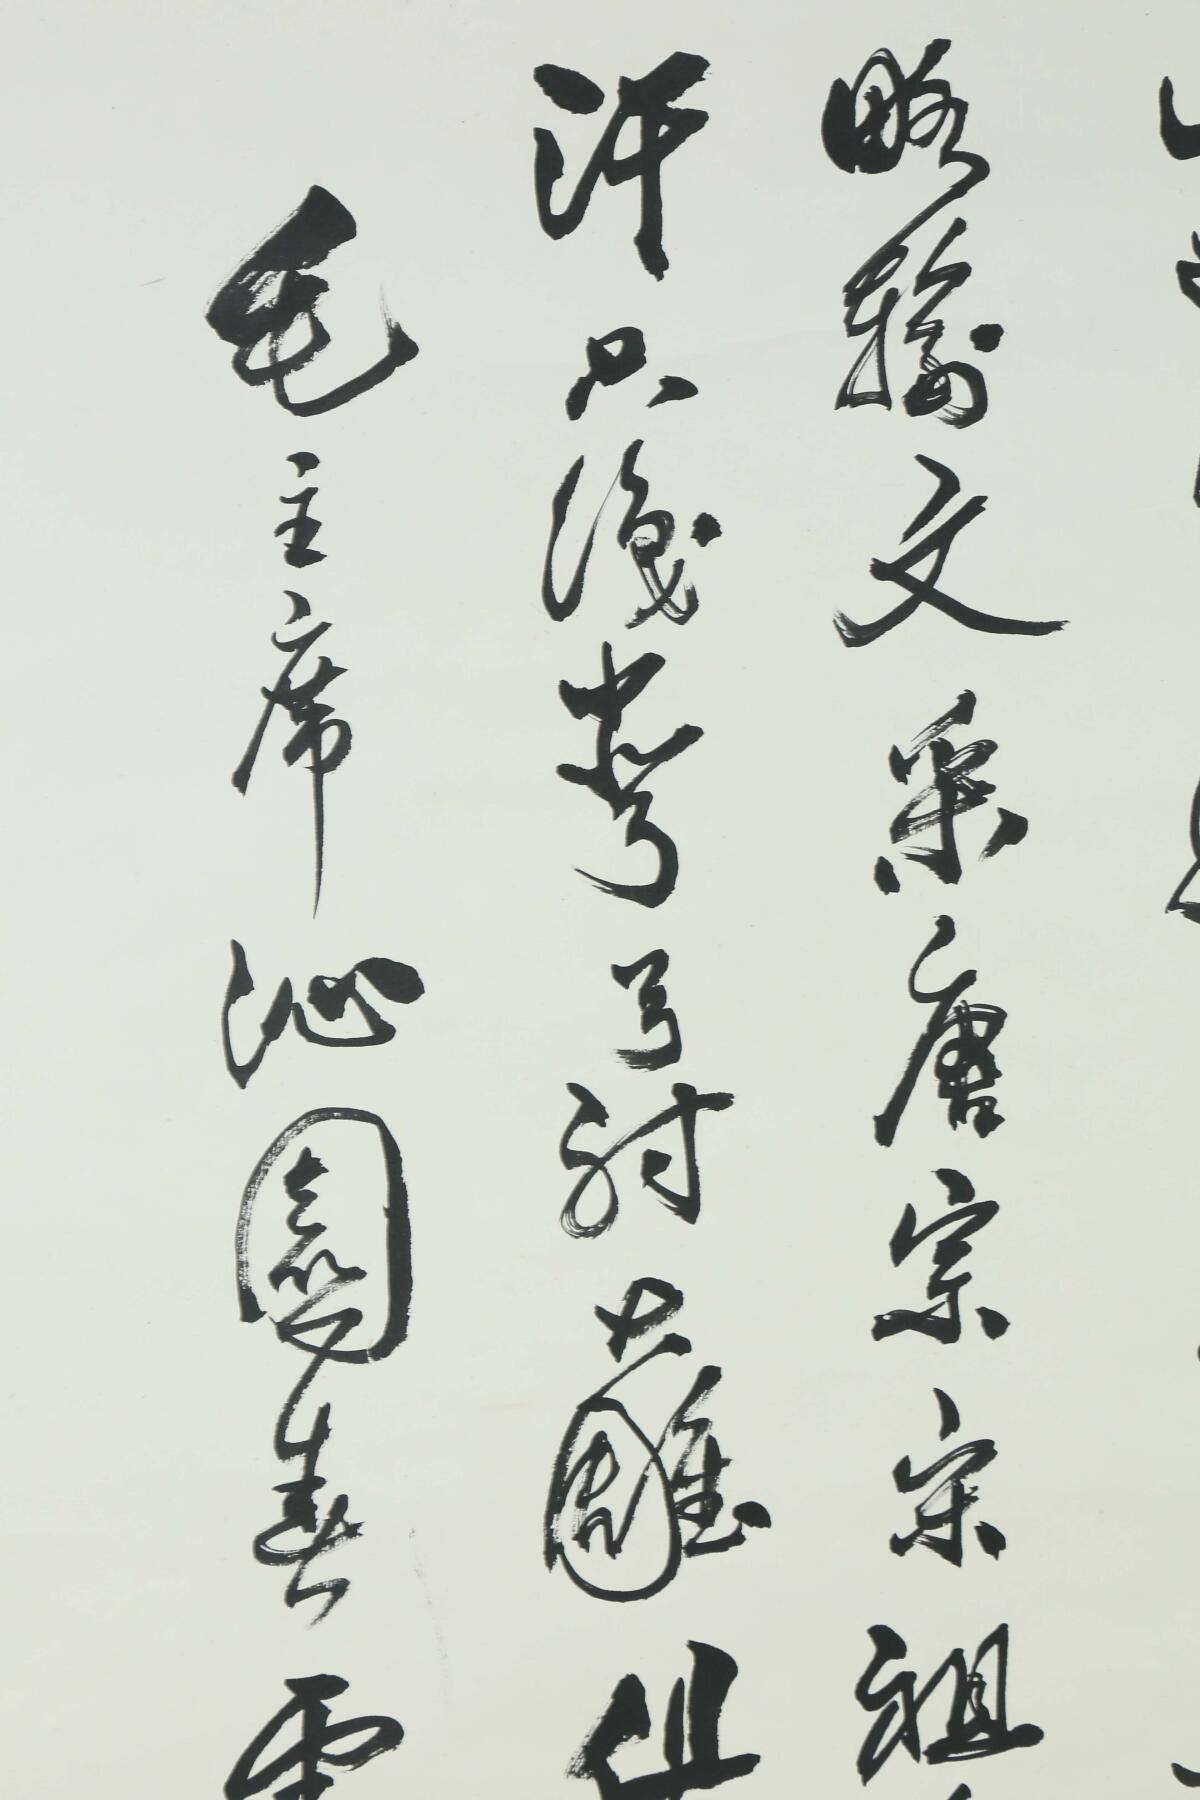 略輸文采唐宗宋祖
汗只識彎弓射大雕
毛主席沁園春雪